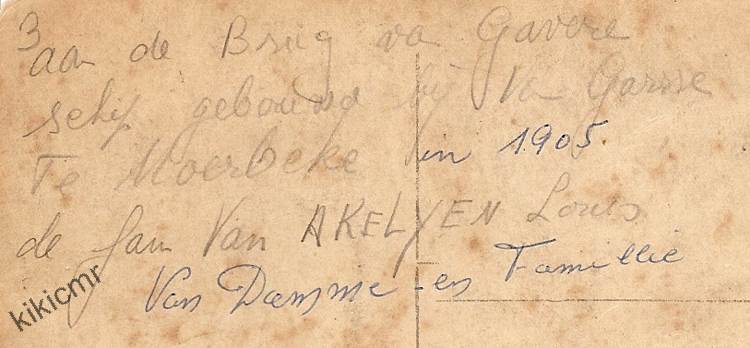 3
aan de Brug va Gavere
schip gebouwd bij Van Garsse
Te Moerbeke in 1905.
de fam Van AKELYEN Louis
Van Damme - en Famillie
kikicmr